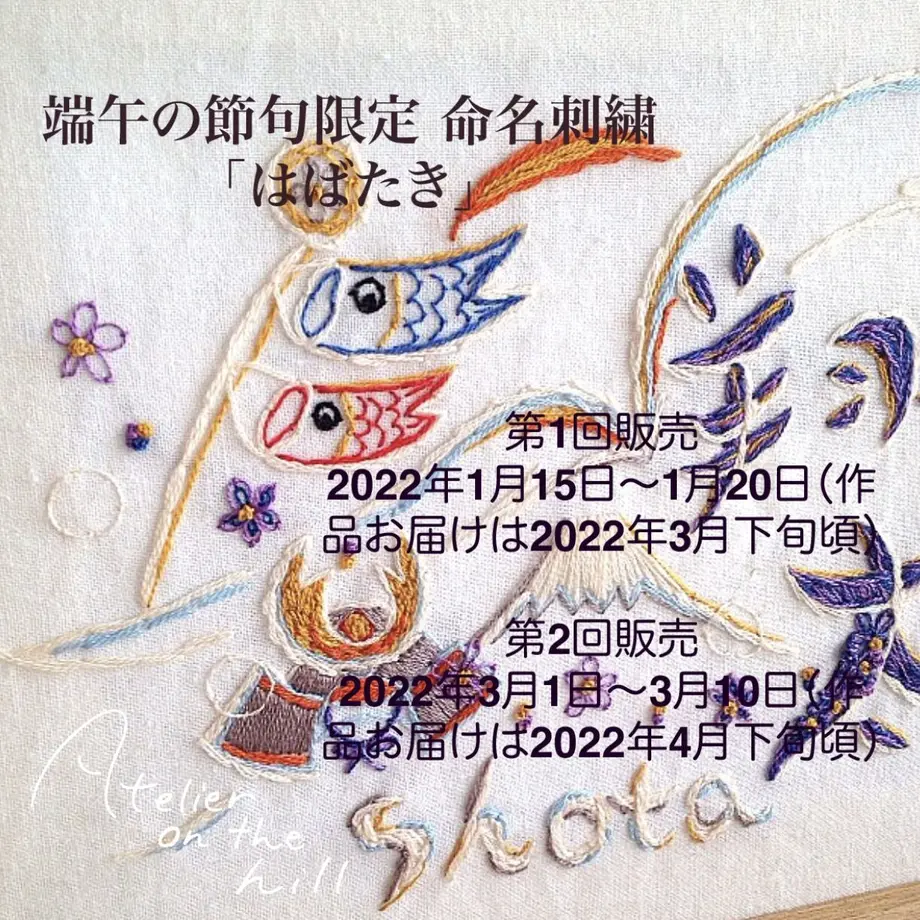 端午の節句限定 命名刺繍
「はばたき」
第1回販売
2022年1月15日〜1月20日(作
品お届けは2022年3月下旬頃)
第2回販売
2022年3月1日〜3月10日(作
品お届けは2022年4月下旬頃)
Atelier
on the
hill
Shota